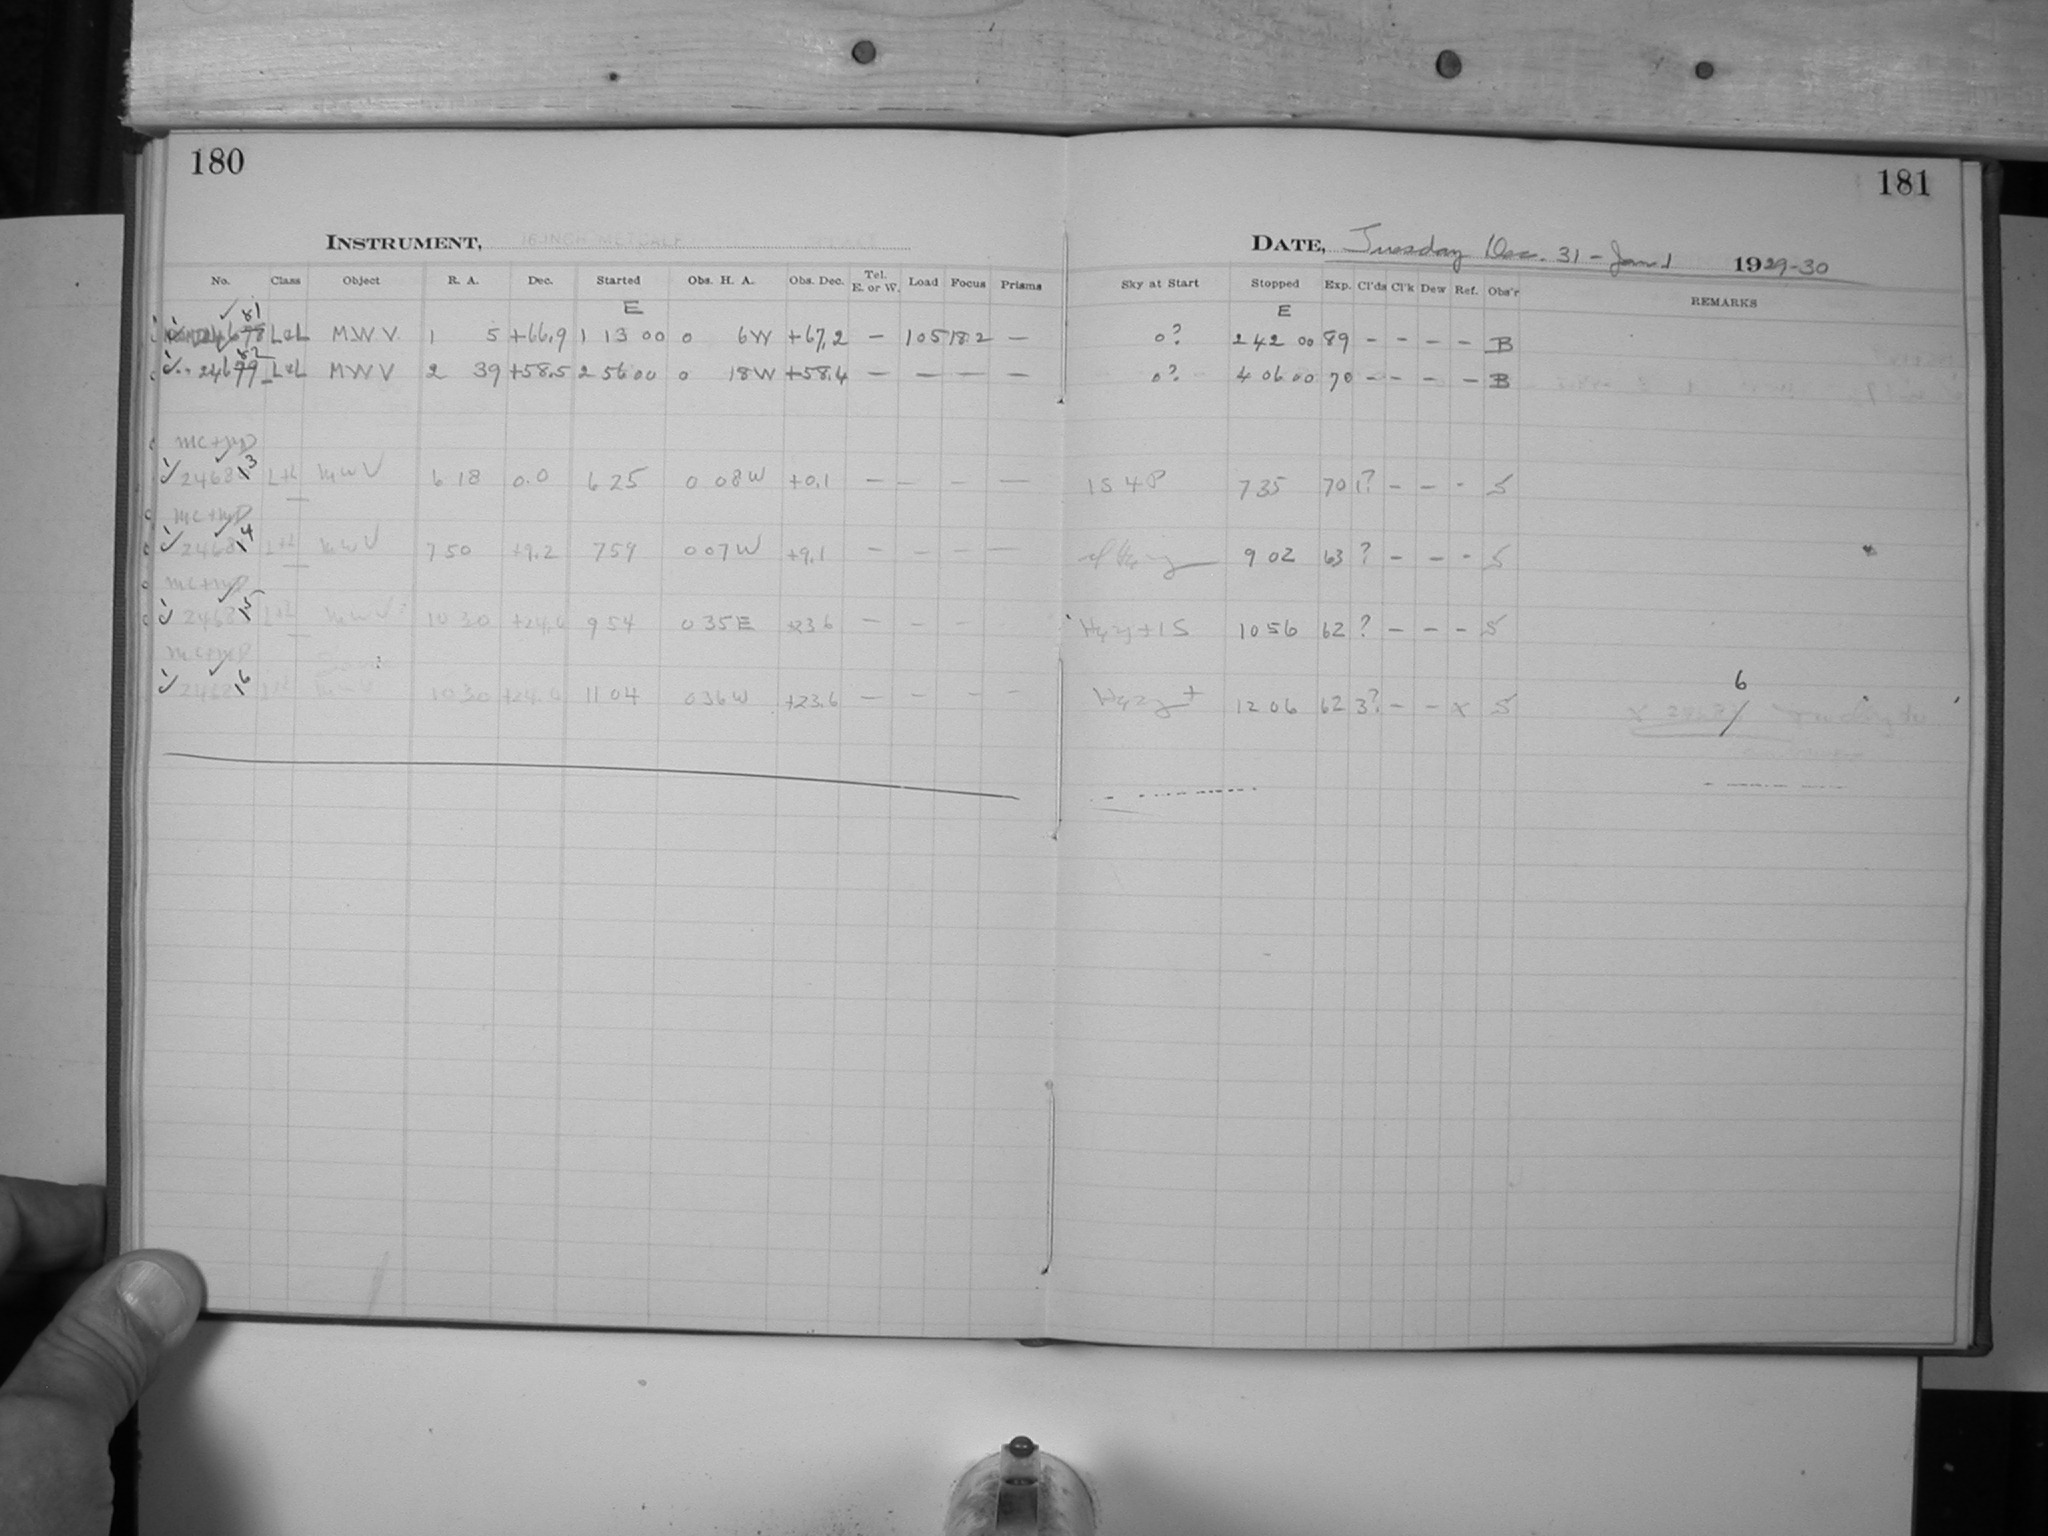 180
181
INSTRUMENT, 16-INCH METCALF
DATE, Tuesday Dec. 31 - Jan 1 1929-30
No. Class Object R. A. Dec. Started Obs. H. A. Obs. Dec. Tel. E. or W. Load Focus Prisms Sky at Start Stopped Exp. Cl'ds Cl'k Dew Ref. Obs'r REMARKS
E E
81
24678 L&L MWV 1 5 +66.9 1 13 00 0 6W +67.2 — 105 18.2 — 0? 2 42 00 89 - - - - B
82
24679 L&L MWV 2 39 +58.5 2 56 00 0 18W +58.4 — — — — 0? 4 06 00 70 - - - - B
MC+MD
2468 3 L+L MWV 6 18 0.0 6 25 0 08W +0.1 — — — — 1S 4P 7 35 70 1? - - - S
MC+MD
2468 4 L+L MWV 7 50 +9.2 7 59 0 07W +9.1 — — — — 9 02 63 ? - - - S
MC+MD
2468 5 L+L MWV 10 30 +24.0 9 54 0 35E +23.6 — — — Hazy+1S 10 56 62 ? - - - S
MC+MD
2468 6 L+L MWV 10 30 +24.0 11 04 0 36W +23.6 — — — — Hazy+ 12 06 62 3? - - x S
6